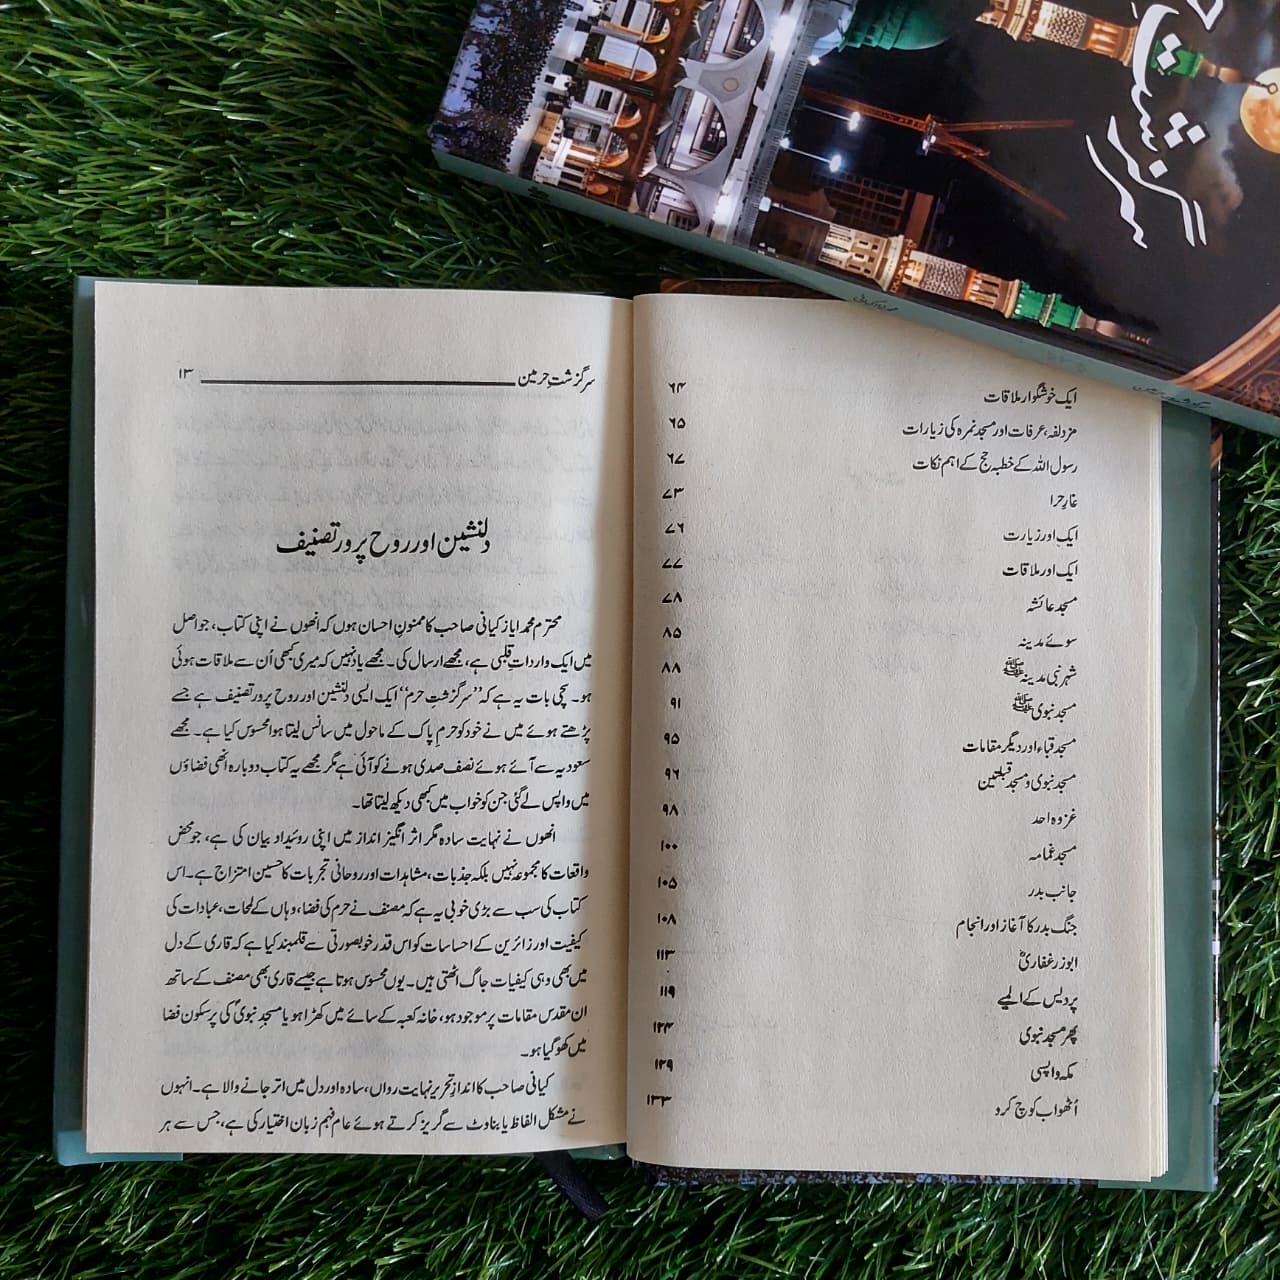 سرگزشت
ایک خوشگوار ملاقات ۶۴
مزدلفہ، عرفات اور مسجد نمرہ کی زیارات ۶۵
رسول اللہ کے خطبہ حج کے اہم نکات ۶۷
غارِ حرا ۷۳
ایک اور زیارت ۷۶
ایک اور ملاقات ۷۷
مسجد عائشہ ۷۸
سوئے مدینہ ۸۵
شہر نبی مدینہ ﷺ ۸۸
مسجد نبوی ﷺ ۹۱
مسجد قباء اور دیگر مقامات ۹۵
مسجد نبوی و مسجد قبلتین ۹۶
غزوہ احد ۹۸
مسجد غمامہ ۱۰۰
جانب بدر ۱۰۵
جنگ بدر کا آغاز اور انجام ۱۰۸
ابوزر غفاریؓ ۱۱۳
پردیس کے المیے ۱۱۹
پھر مسجد نبوی ۱۲۴
مکہ واپسی ۱۲۹
اُٹھو اب کوچ کرو ۱۳۳
سرگزشتِ حرمین ۱۳
دلنشین اور روح پرور تصنیف
محترم محمد ایاز کیانی صاحب کا ممنونِ احسان ہوں کہ انھوں نے اپنی کتاب، جو اصل
میں ایک وارداتِ قلبی ہے، مجھے ارسال کی۔ مجھے یاد نہیں کہ میری کبھی اُن سے ملاقات ہوئی
ہو۔ سچی بات یہ ہے کہ ”سرگزشتِ حرم“ ایک ایسی دلنشین اور روح پرور تصنیف ہے جسے
پڑھتے ہوئے میں نے خود کو حرمِ پاک کے ماحول میں سانس لیتا ہوا محسوس کیا ہے۔ مجھے
سعودیہ سے آئے ہوئے نصف صدی ہونے کو آئی ہے مگر مجھے یہ کتاب دوبارہ انھی فضاؤں
میں واپس لے گئی جن کو خواب میں کبھی دیکھ لیتا تھا۔
انھوں نے نہایت سادہ مگر اثر انگیز انداز میں اپنی روئیداد بیان کی ہے، جو محض
واقعات کا مجموعہ نہیں بلکہ جذبات، مشاہدات اور روحانی تجربات کا حسین امتزاج ہے۔ اس
کتاب کی سب سے بڑی خوبی یہ ہے کہ مصنف نے حرم کی فضا، وہاں کے لمحات، عبادات کی
کیفیت اور زائرین کے احساسات کو اس قدر خوبصورتی سے قلمبند کیا ہے کہ قاری کے دل
میں بھی وہی کیفیات جاگ اٹھتی ہیں۔ یوں محسوس ہوتا ہے جیسے قاری بھی مصنف کے ساتھ
ان مقدس مقامات پر موجود ہو، خانہ کعبہ کے سائے میں کھڑا ہو یا مسجدِ نبویؐ کی پرسکون فضا
میں کھو گیا ہو۔
کیانی صاحب کا اندازِ تحریر نہایت رواں، سادہ اور دل میں اتر جانے والا ہے۔ انہوں
نے مشکل الفاظ یا بناوٹ سے گریز کرتے ہوئے عام فہم زبان اختیار کی ہے، جس سے ہر